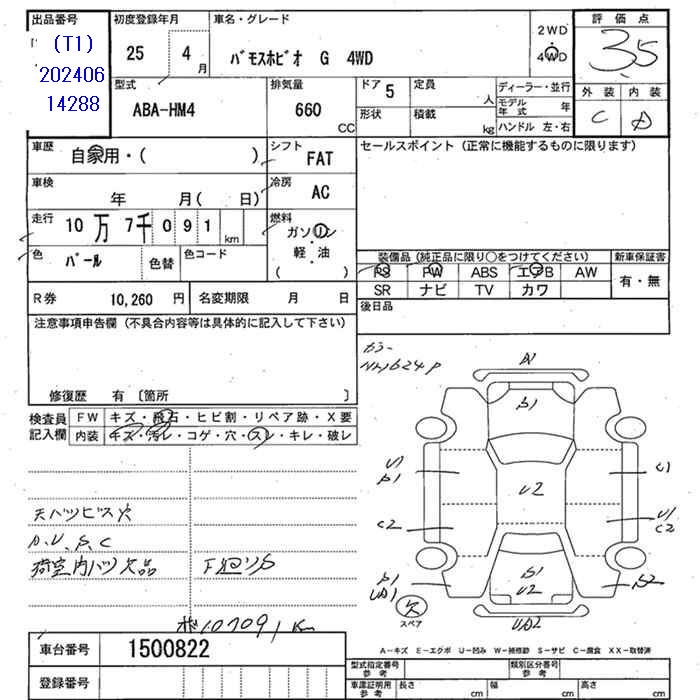 出品番号 初度登録年月 車名・グレード 2WD 評価点
(T1) 25 4月 バモスホビオ G 4WD 4WD 3.5
202406 型式 排気量 ドア 5 定員 人 ディーラー・並行 外装 内装
14288 ABA-HM4 660 CC 形状 積載 kg モデル年式 年 C D
ハンドル 左・右
車歴 自家用・( ) シフト FAT セールスポイント (正常に機能するものに限ります)
車検 年 月( 日) 冷房 AC
走行 10万7千091km 燃料 ガソリン・軽・油 ( )
色 パール 色替 色コード 装備品 (純正品に限り○をつけてください) 新車保証書
PS PW ABS エアB AW 有・無
SR ナビ TV カワ
R券 10,260 円 名変期限 月 日 後日品
注意事項申告欄 (不具合内容等は具体的に記入して下さい)
カラー
NH624P
修復歴 有 [箇所 ]
検査員記入欄 FW キズ・飛石・ヒビ割・リペア跡・X要
内装 キズ・汚レ・コゲ・穴・スレ・キレ・破レ
A1
B1
U1 B1 U2 C1
C2 U1 C2
B1 B1 U2 B2
欠 スペア
天バツビス穴
A、U、B、C
荷室内ハツ欠品 下廻りS
メ 107091Km
A-キズ E-エクボ U-凹み W-補修跡 S-サビ C-腐食 XX-取替済
車台番号 1500822
登録番号
型式指定番号 参考 類別区分番号 参考
車庫証明用 参考 長さ cm 幅 cm 高さ cm